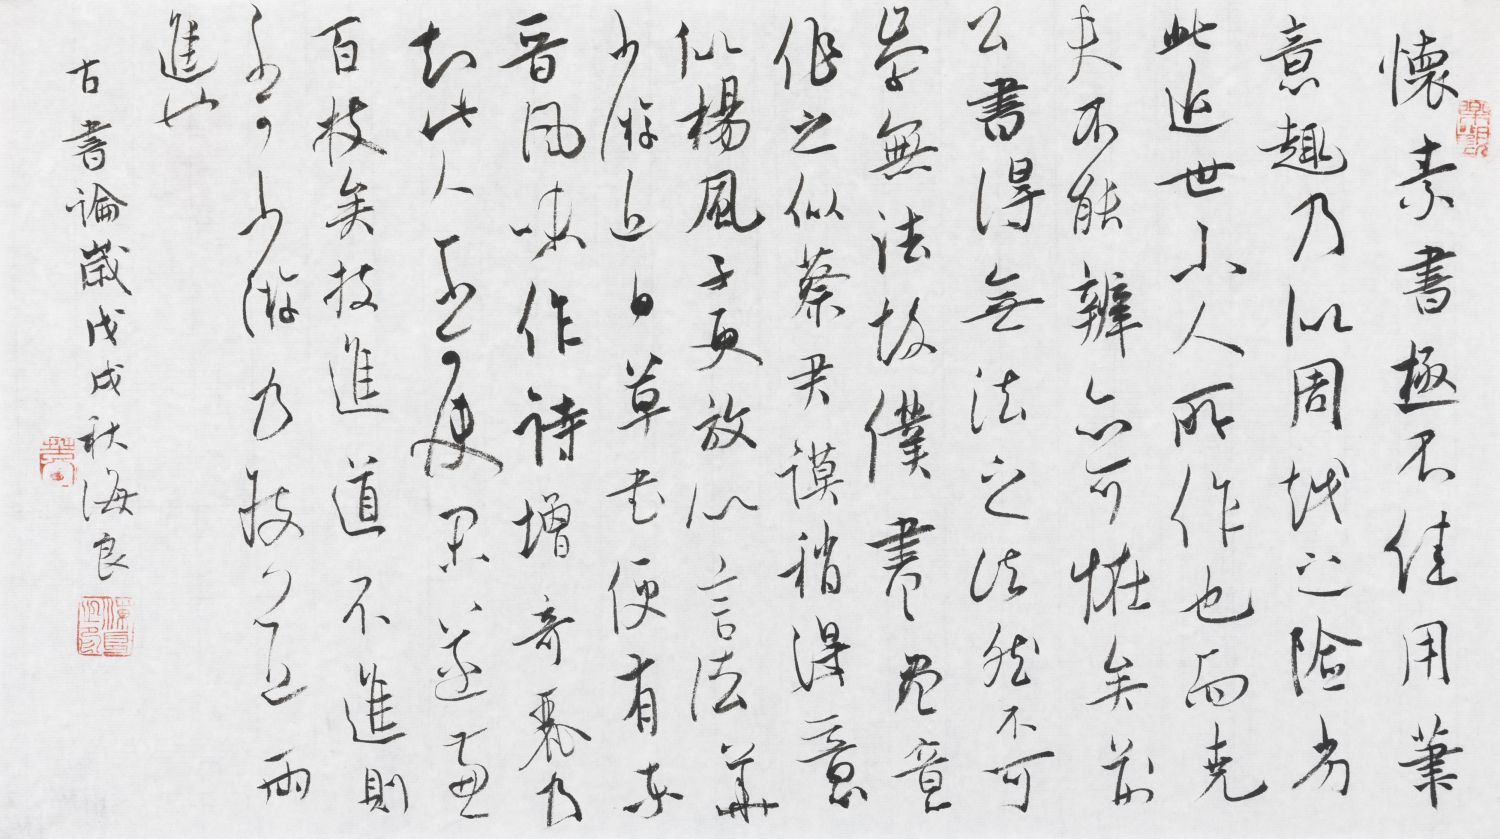 懷素書極不佳用筆
意趣乃似周越之險劣
此近世小人所作也而堯
夫不能辨亦可怪矣前
公書得無法之法然不可
學無法故僕書盡意
作之似蔡君謨稍得意
似楊風子更放似言法華
少游近日草書便有東
晉風味作詩增奇麗乃
知此人不可使閑遂兼
百技矣技進道不進則
不可少游乃技道兩
進也
古書論歲戊戌秋海良